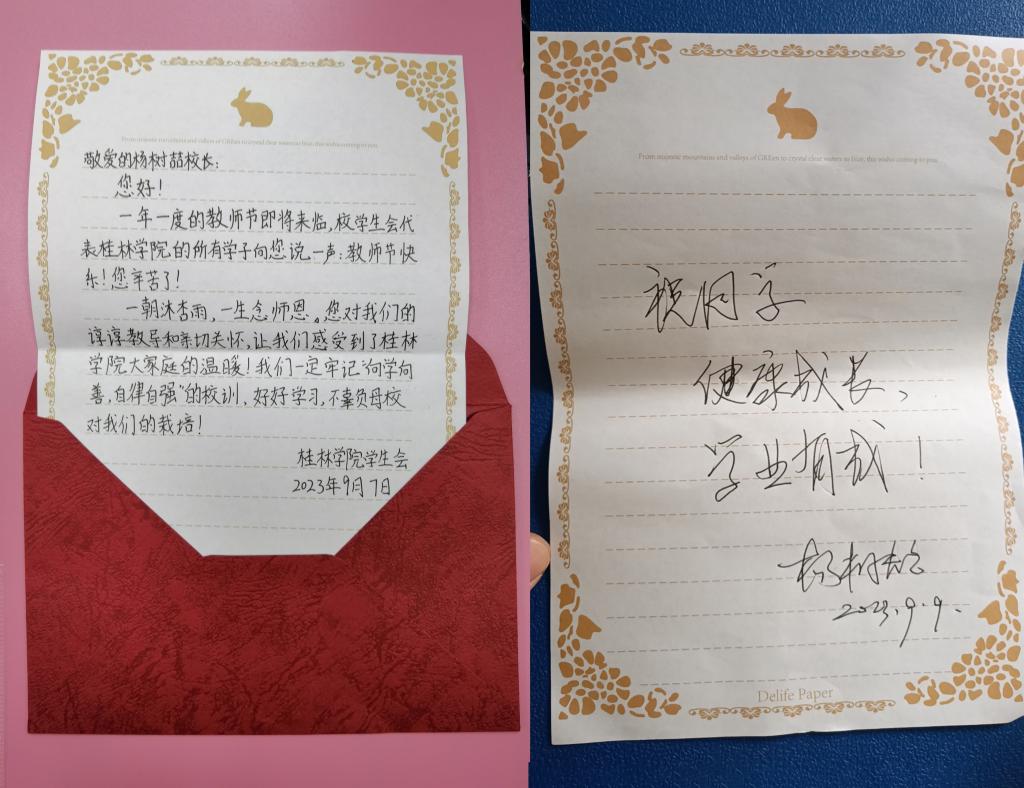 From majestic mountains and valleys of GREen to crystal clear waters so blue, this wishes coming to you.
敬爱的杨树喆校长:
您好!
一年一度的教师节即将来临,校学生会代
表桂林学院的所有学子向您说一声:教师节快
乐!您辛苦了!
一朝沐杏雨,一生念师恩。您对我们的
谆谆教导和亲切关怀,让我们感受到了桂林
学院大家庭的温暖!我们一定牢记“向学向
善,自律自强”的校训,好好学习,不辜负母校
对我们的栽培!
桂林学院学生会
2023年9月7日
From majestic mountains and valleys of GREen to crystal clear waters so blue, this wishes coming to you.
祝同学
健康成长、
学业有成!
杨树喆
2023.9.9.
Delife Paper